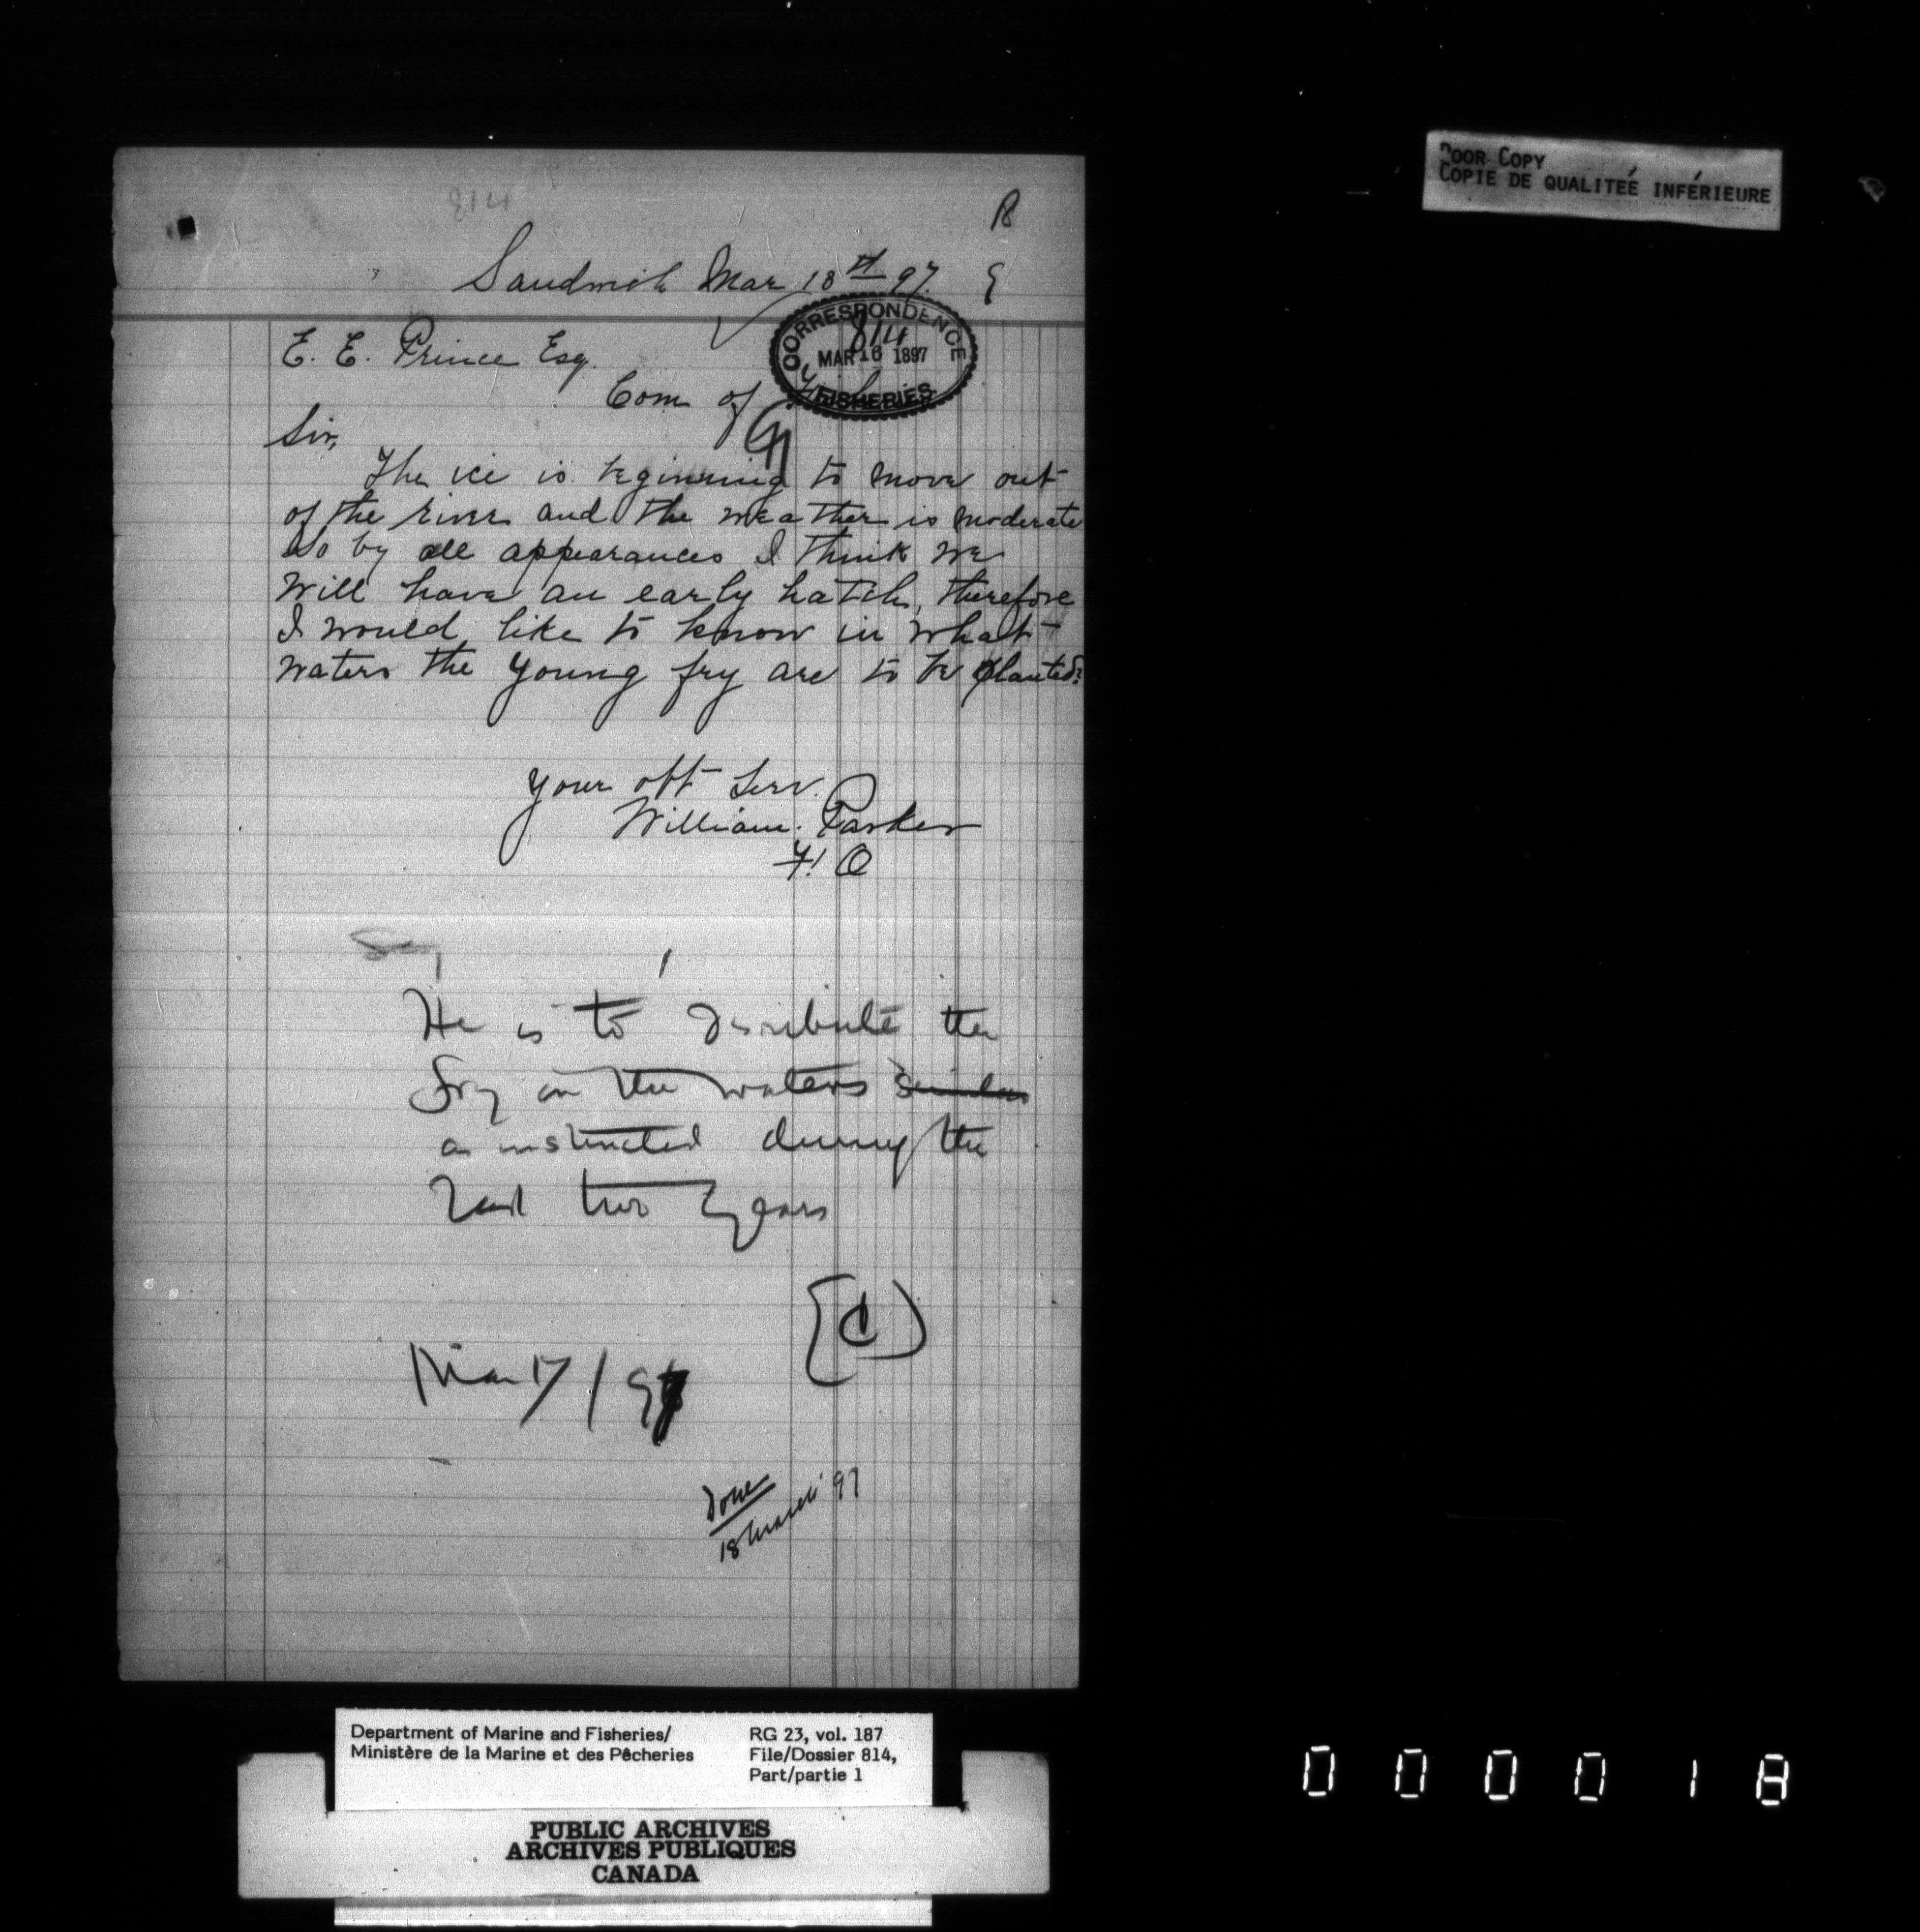 POOR COPY
COPIE DE QUALITEÉ INFÉRIEURE
814
Sandwich Mar 18th 97.
E. E. Prince Esq.
CORRESPONDENCE
814
MAR 18 1897
FISHERIES
Com of Fisheries
Sir,
The ice is beginning to move out
of the river and the weather is moderate
So by all appearances I think we
will have an early hatch, therefore
I would like to know in what
waters the young fry are to be planted?
Your obt Serv.
William. Parker
F. O
Say
He is to distribute the
fry in the waters similar
as instructed during the
last two years
Mar 17/97
Done
18 March '97
Department of Marine and Fisheries/
Ministère de la Marine et des Pêcheries
RG 23, vol. 187
File/Dossier 814,
Part/partie 1
PUBLIC ARCHIVES
ARCHIVES PUBLIQUES
CANADA
000018